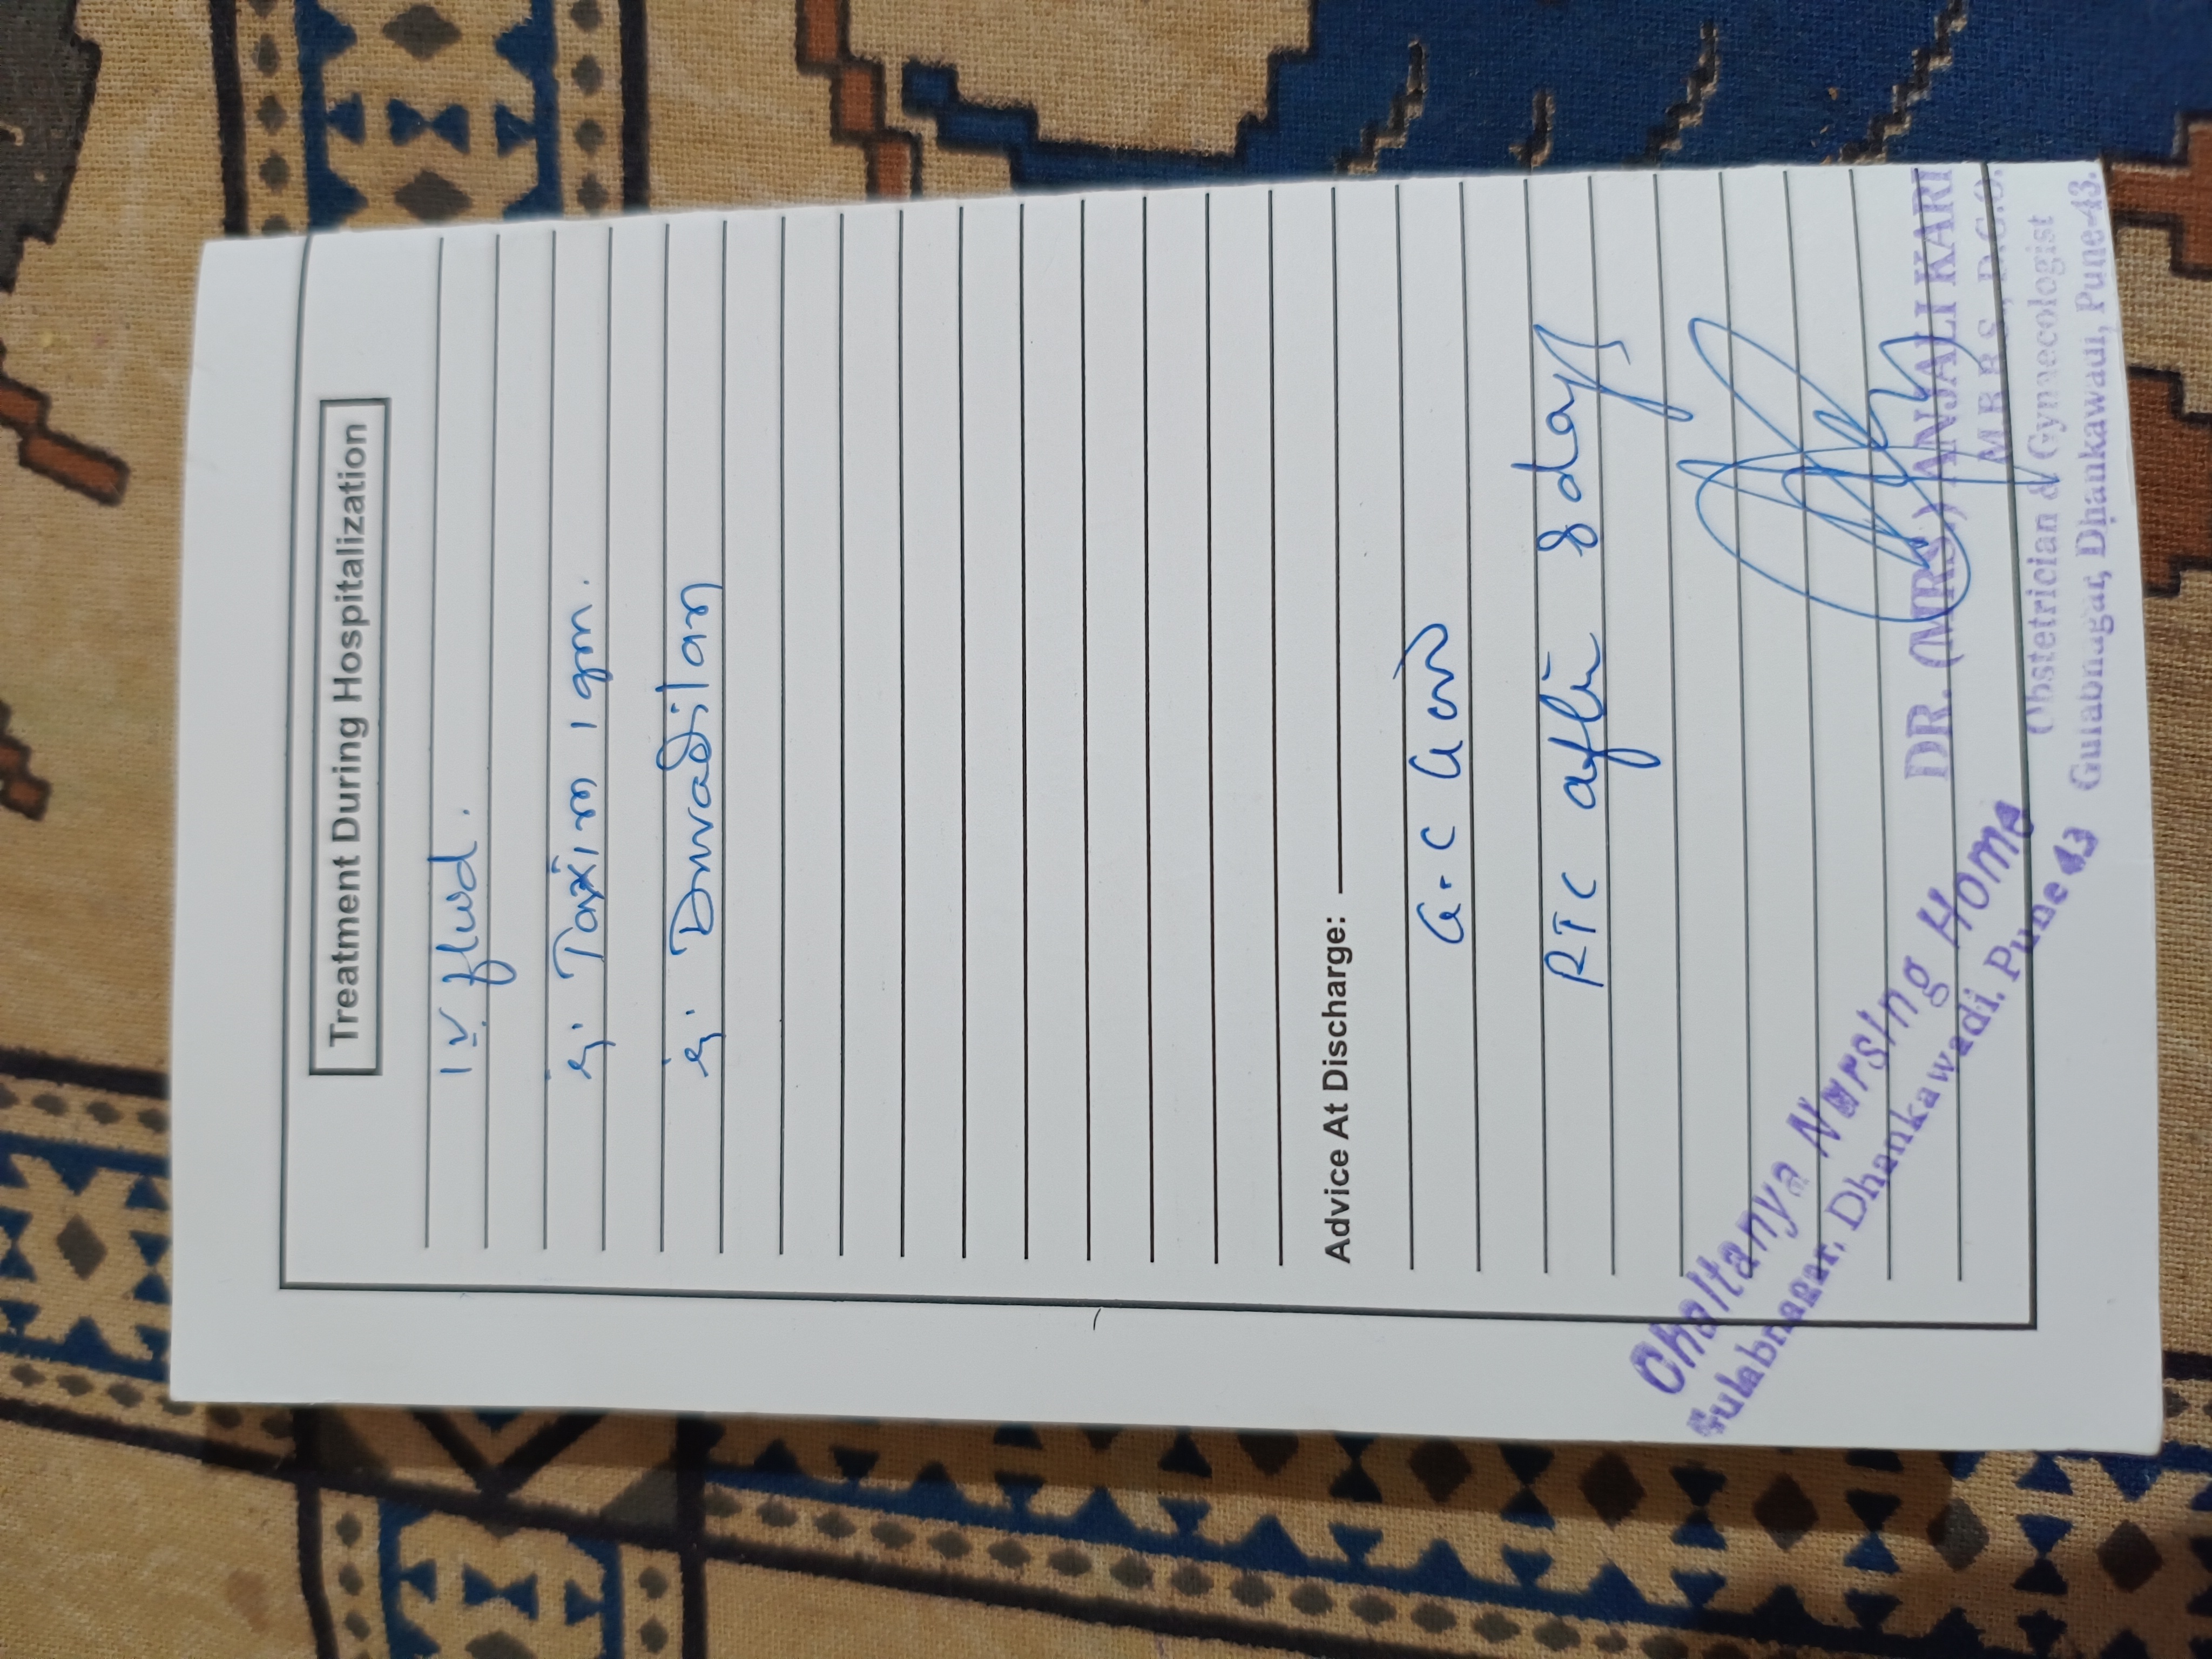 Treatment During Hospitalization
IV fluid.
inj. Taxim 1 gm.
inj. Duvadilan
Advice At Discharge:
G.C Good
RTC after 8 days
Chaitanya Nursing Home
Gulabnagar, Dhankawadi, Pune 43
DR. (MRS.) ANJALI KARI
M.B.B.S., D.G.O.
Obstetrician & Gynaecologist
Gulabnagar, Dhankawadi, Pune-43.